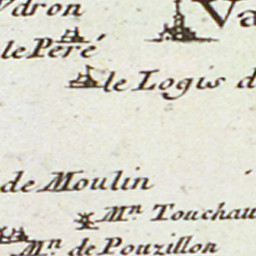 ydron
Va
le Peré
le Logis d
de Moulin
Mn. Touchau
Mn. de Pouzillon